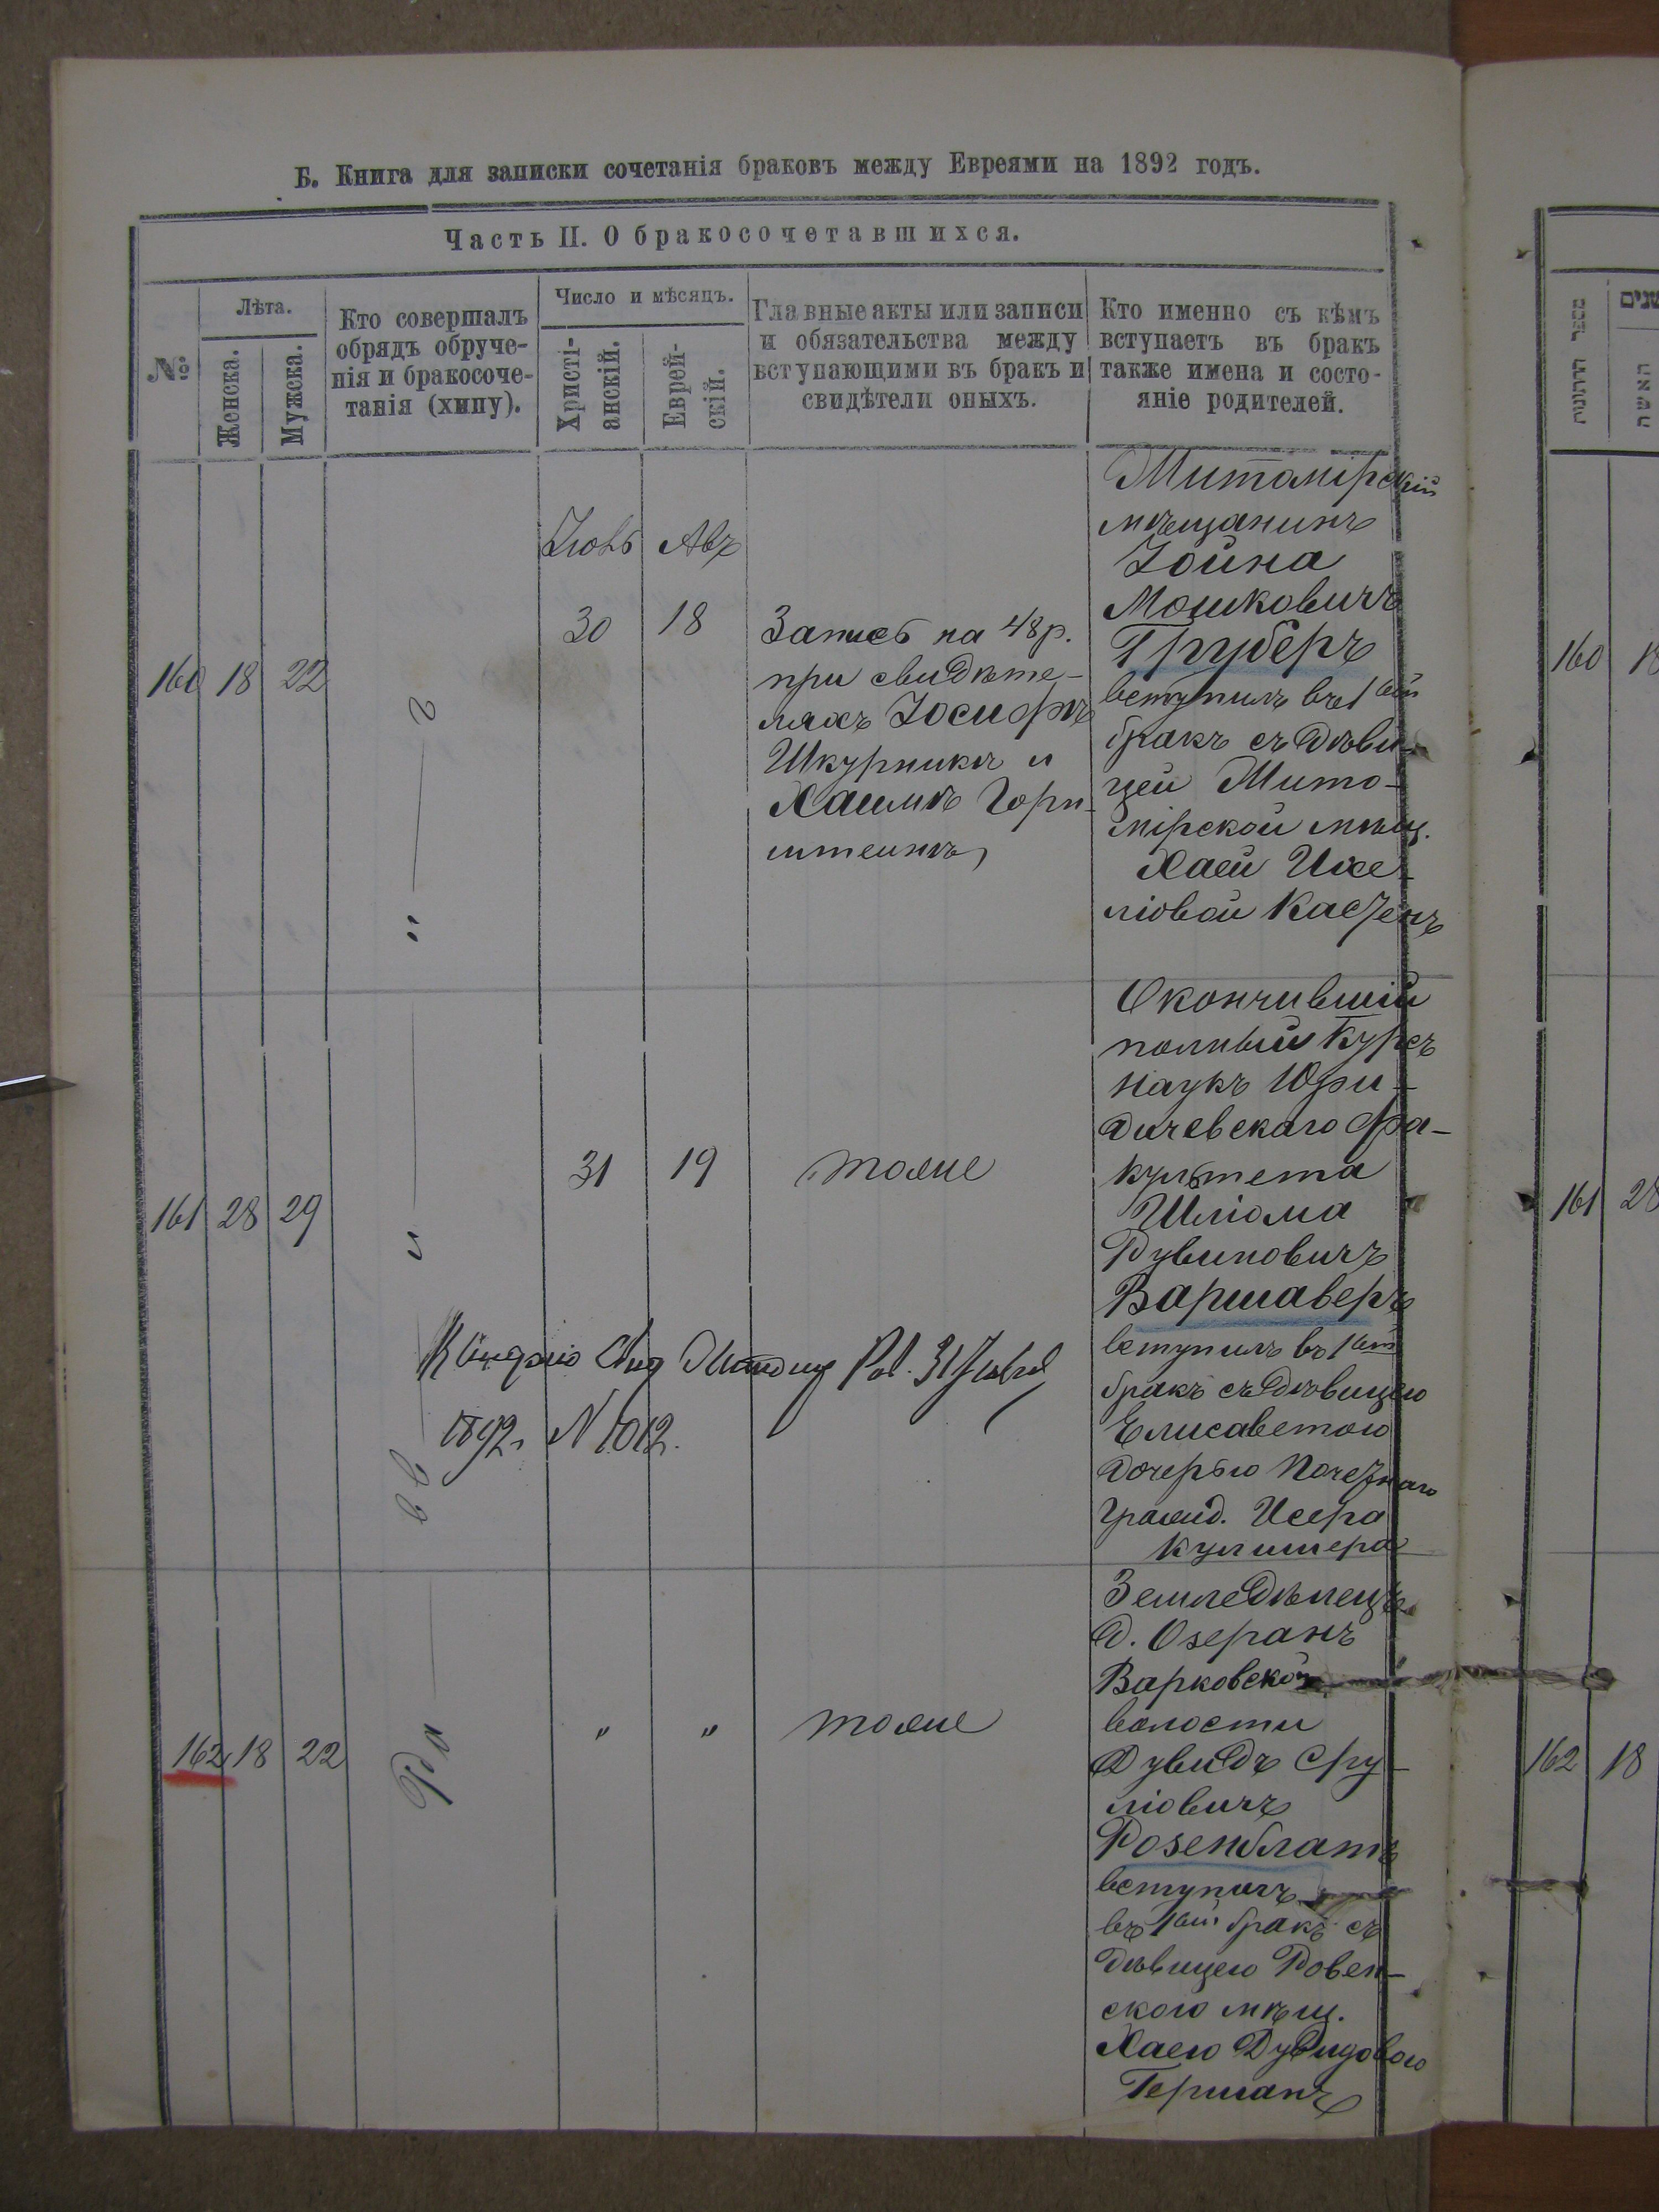 Б. Книга для записки сочетанія браковъ между Евреями на 1892 годъ.
Часть II. О бракосочетавшихся.
№
Лѣта.
Женска.
Мужска.
Кто совершалъ
обрядъ обруче-
нія и бракосоче-
танія (хипу).
Число и мѣсяцъ.
Христі-
анскій.
Еврей-
скій.
Главные акты или записи
и обязательства между
вступающими въ бракъ и
свидѣтели оныхъ.
Кто именно съ кѣмъ
вступаетъ въ бракъ
также имена и состо-
яніе родителей.
160 18 22
Іюль Авъ
30 18
Запись на 48 р.
при свидѣте-
ляхъ Іосифѣ
Шкурникѣ и
Хаимѣ Горн-
штейнѣ
Житомірскій
мѣщанинъ
Іойна
Мошковичъ
Груберъ
вступилъ въ 1ый
бракъ съ дѣви-
цей Жито-
мірской мѣщ.
Хаей Ихе-
ліовой
161 28 29
31 19
тоже
Окончившій
полный курсъ
наукъ Юри-
дическаго фа-
культета
Шліома
Рувиновичъ
Варшаверъ
вступилъ въ 1ый
бракъ съ дѣвицею
Елисаветою
дочерью Почетнаго
гражд. Исера
Кулишера
31
1892. N 1012.
162 18 22
" "
тоже
Земледѣлецъ
д. Озеранъ
Варковской
волости
Дувидъ Сру-
ліовичъ
Розенблатъ
вступилъ
въ 1ый бракъ съ
дѣвицею Ровен-
скою мѣщ.
Хаею Дувидовою
Германъ
מספר החתונות
האשה
160
161 28
162 18